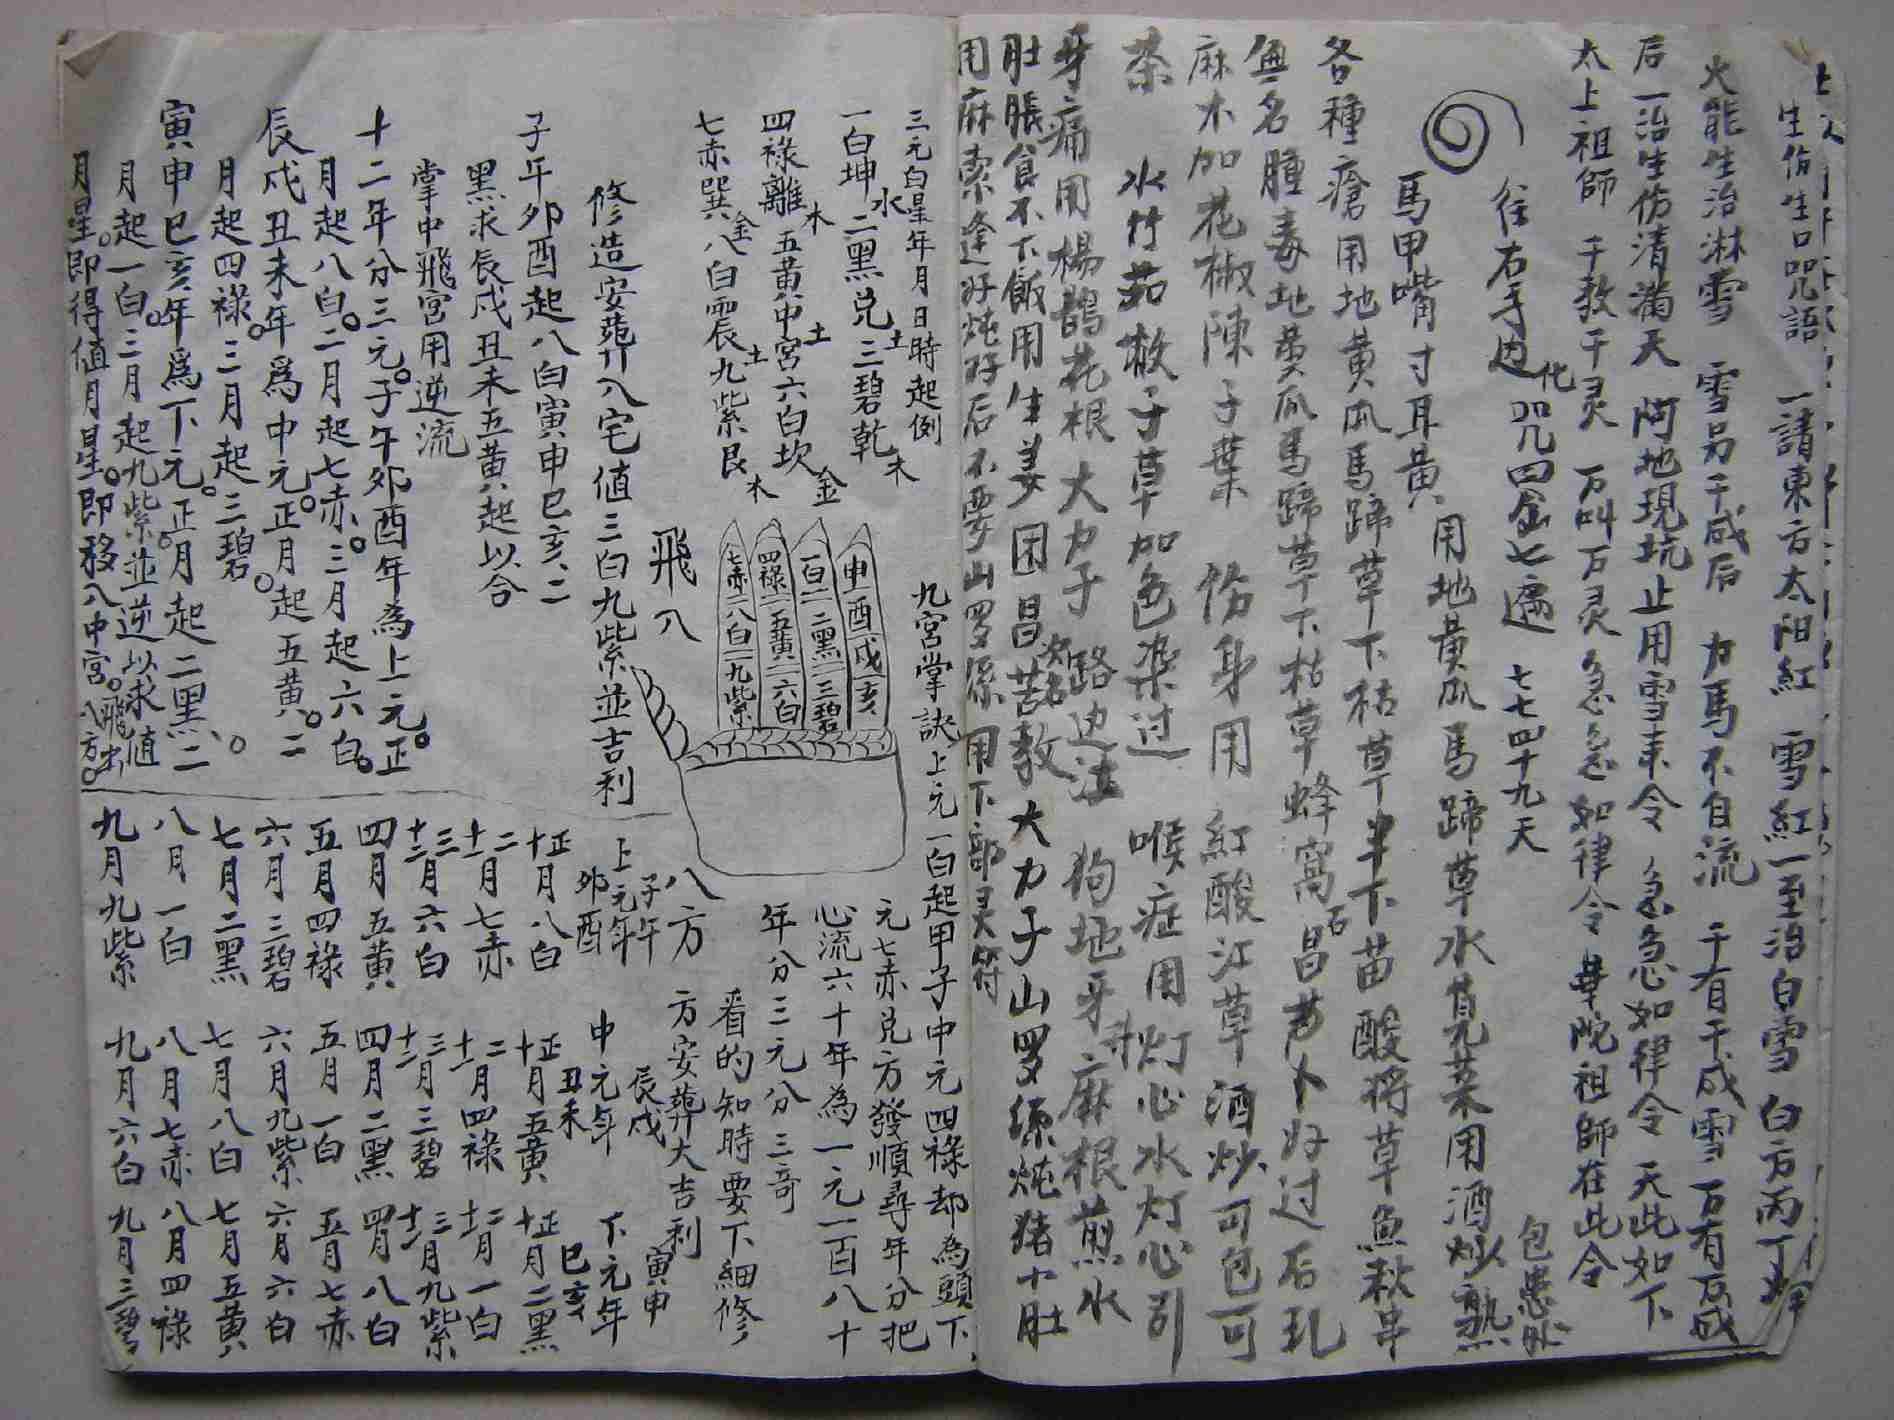 生仿生口咒語 一請東方太阳紅 雪紅一至治白雪 白方丙丁
火能生治淋雪 雪另千成后 力馬不自流 千有千成雪 万有万成
后一治生仿清滿天 阿地現坑止用雪来令 急急如律令 天此如下
太上祖師 千教千灵 万叫万灵 急急如律令 華陀祖師在此令
往右手边化咒四金七遍 七七四十九天
馬甲嘴寸耳黄 用地黄瓜馬蹄草水莧菜用酒炒熟 包患処
各種瘡用地黄瓜馬蹄草下枯草半下苗酸将草魚秋串
無名腫毒地黄瓜馬蹄草下枯草蜂窩石昌芦卜好过后
麻木加花椒陳子葉 傷身用 紅酸江草酒炒可包可
茶 水竹茹撒子草加色染过 喉症用灯心水灯心引
牙痛用楊鵲花根大力子 路边 狗地牙 麻根煎水
肚脹食不下飯用生姜 困昌苦教大力子山罗 炖猪小肚
用麻索逢好炖好后不要山罗 用下部灵符
三元白星年月日時起例
一白坤水二黑兑土三碧乾木
四祿離木五黄中宮土六白坎金
七赤巽金八白震土九紫艮木
九宮掌訣上元一白起甲子中元四祿却為頭下
元七赤兑方發順尋年分把
心流六十年為一元一百八十
年分三元分三奇
看的知時要下細修
方安葬大吉利
申酉戌亥
一白二黑三碧
四祿五黄六白
七赤八白九紫
飛八
八方
修造安葬入宅值三白九紫並吉利
子年卯酉起八白寅申巳亥二
黑求辰戌丑未五黄起以合
掌中飛宮用逆流
十二年分三元。子午卯酉年為上元。正
月起八白。二月起七赤。三月起六白。
辰戌丑未年為中元。正月起五黄。二
月起四祿。三月起三碧。
寅申巳亥年為下元。正月起二黑、二
月起一白。三月起九紫並逆以求值
月星。即得值月星。即移入中宮。飛出八方。
上元年 子午卯酉
正十月八白
二十一月七赤
三十二月六白
四月五黄
五月四祿
六月三碧
七月二黑
八月一白
九月九紫
中元年 辰戌丑未
正十月五黄
二十一月四祿
三十二月三碧
四月二黑
五月一白
六月九紫
七月八白
八月七赤
九月六白
下元年 寅申巳亥
正十月二黑
二十一月一白
三十二月九紫
四月八白
五月七赤
六月六白
七月五黄
八月四祿
九月三碧